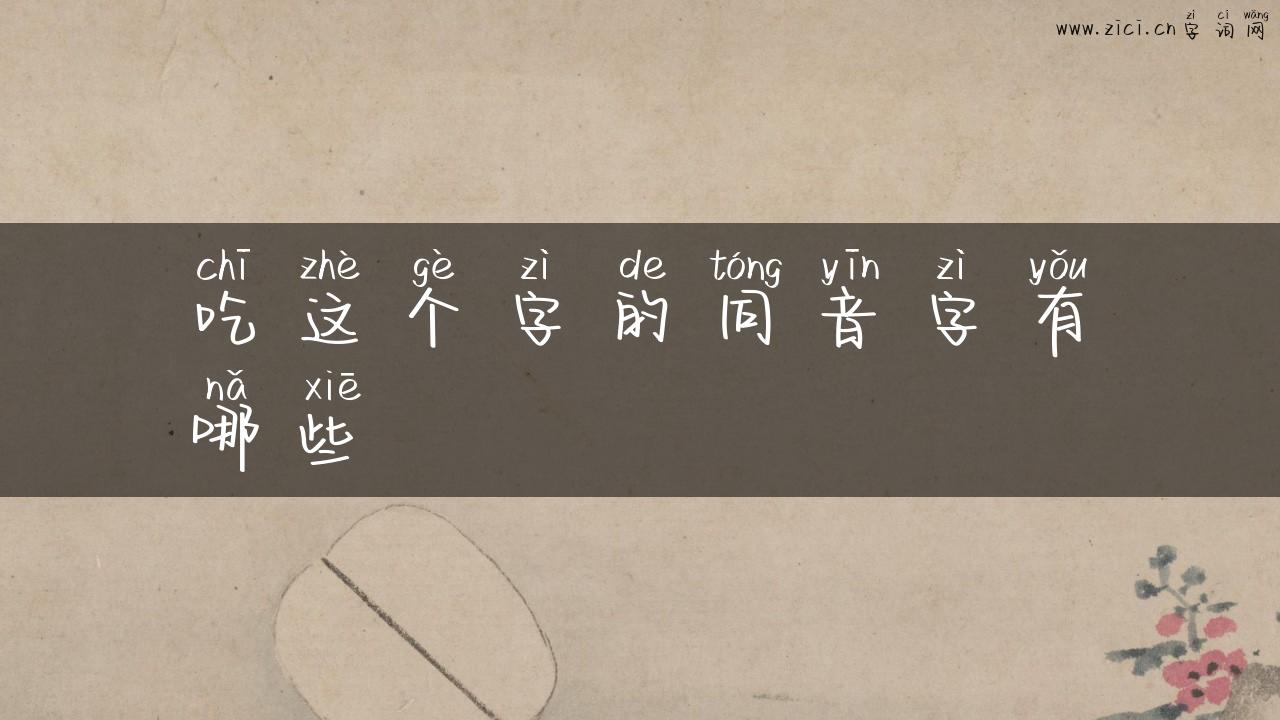 zì cí wǎng
www.zici.cn 字词网
chī zhè gè zì de tóng yīn zì yǒu
吃这个字的同音字有
nǎ xiē
哪些